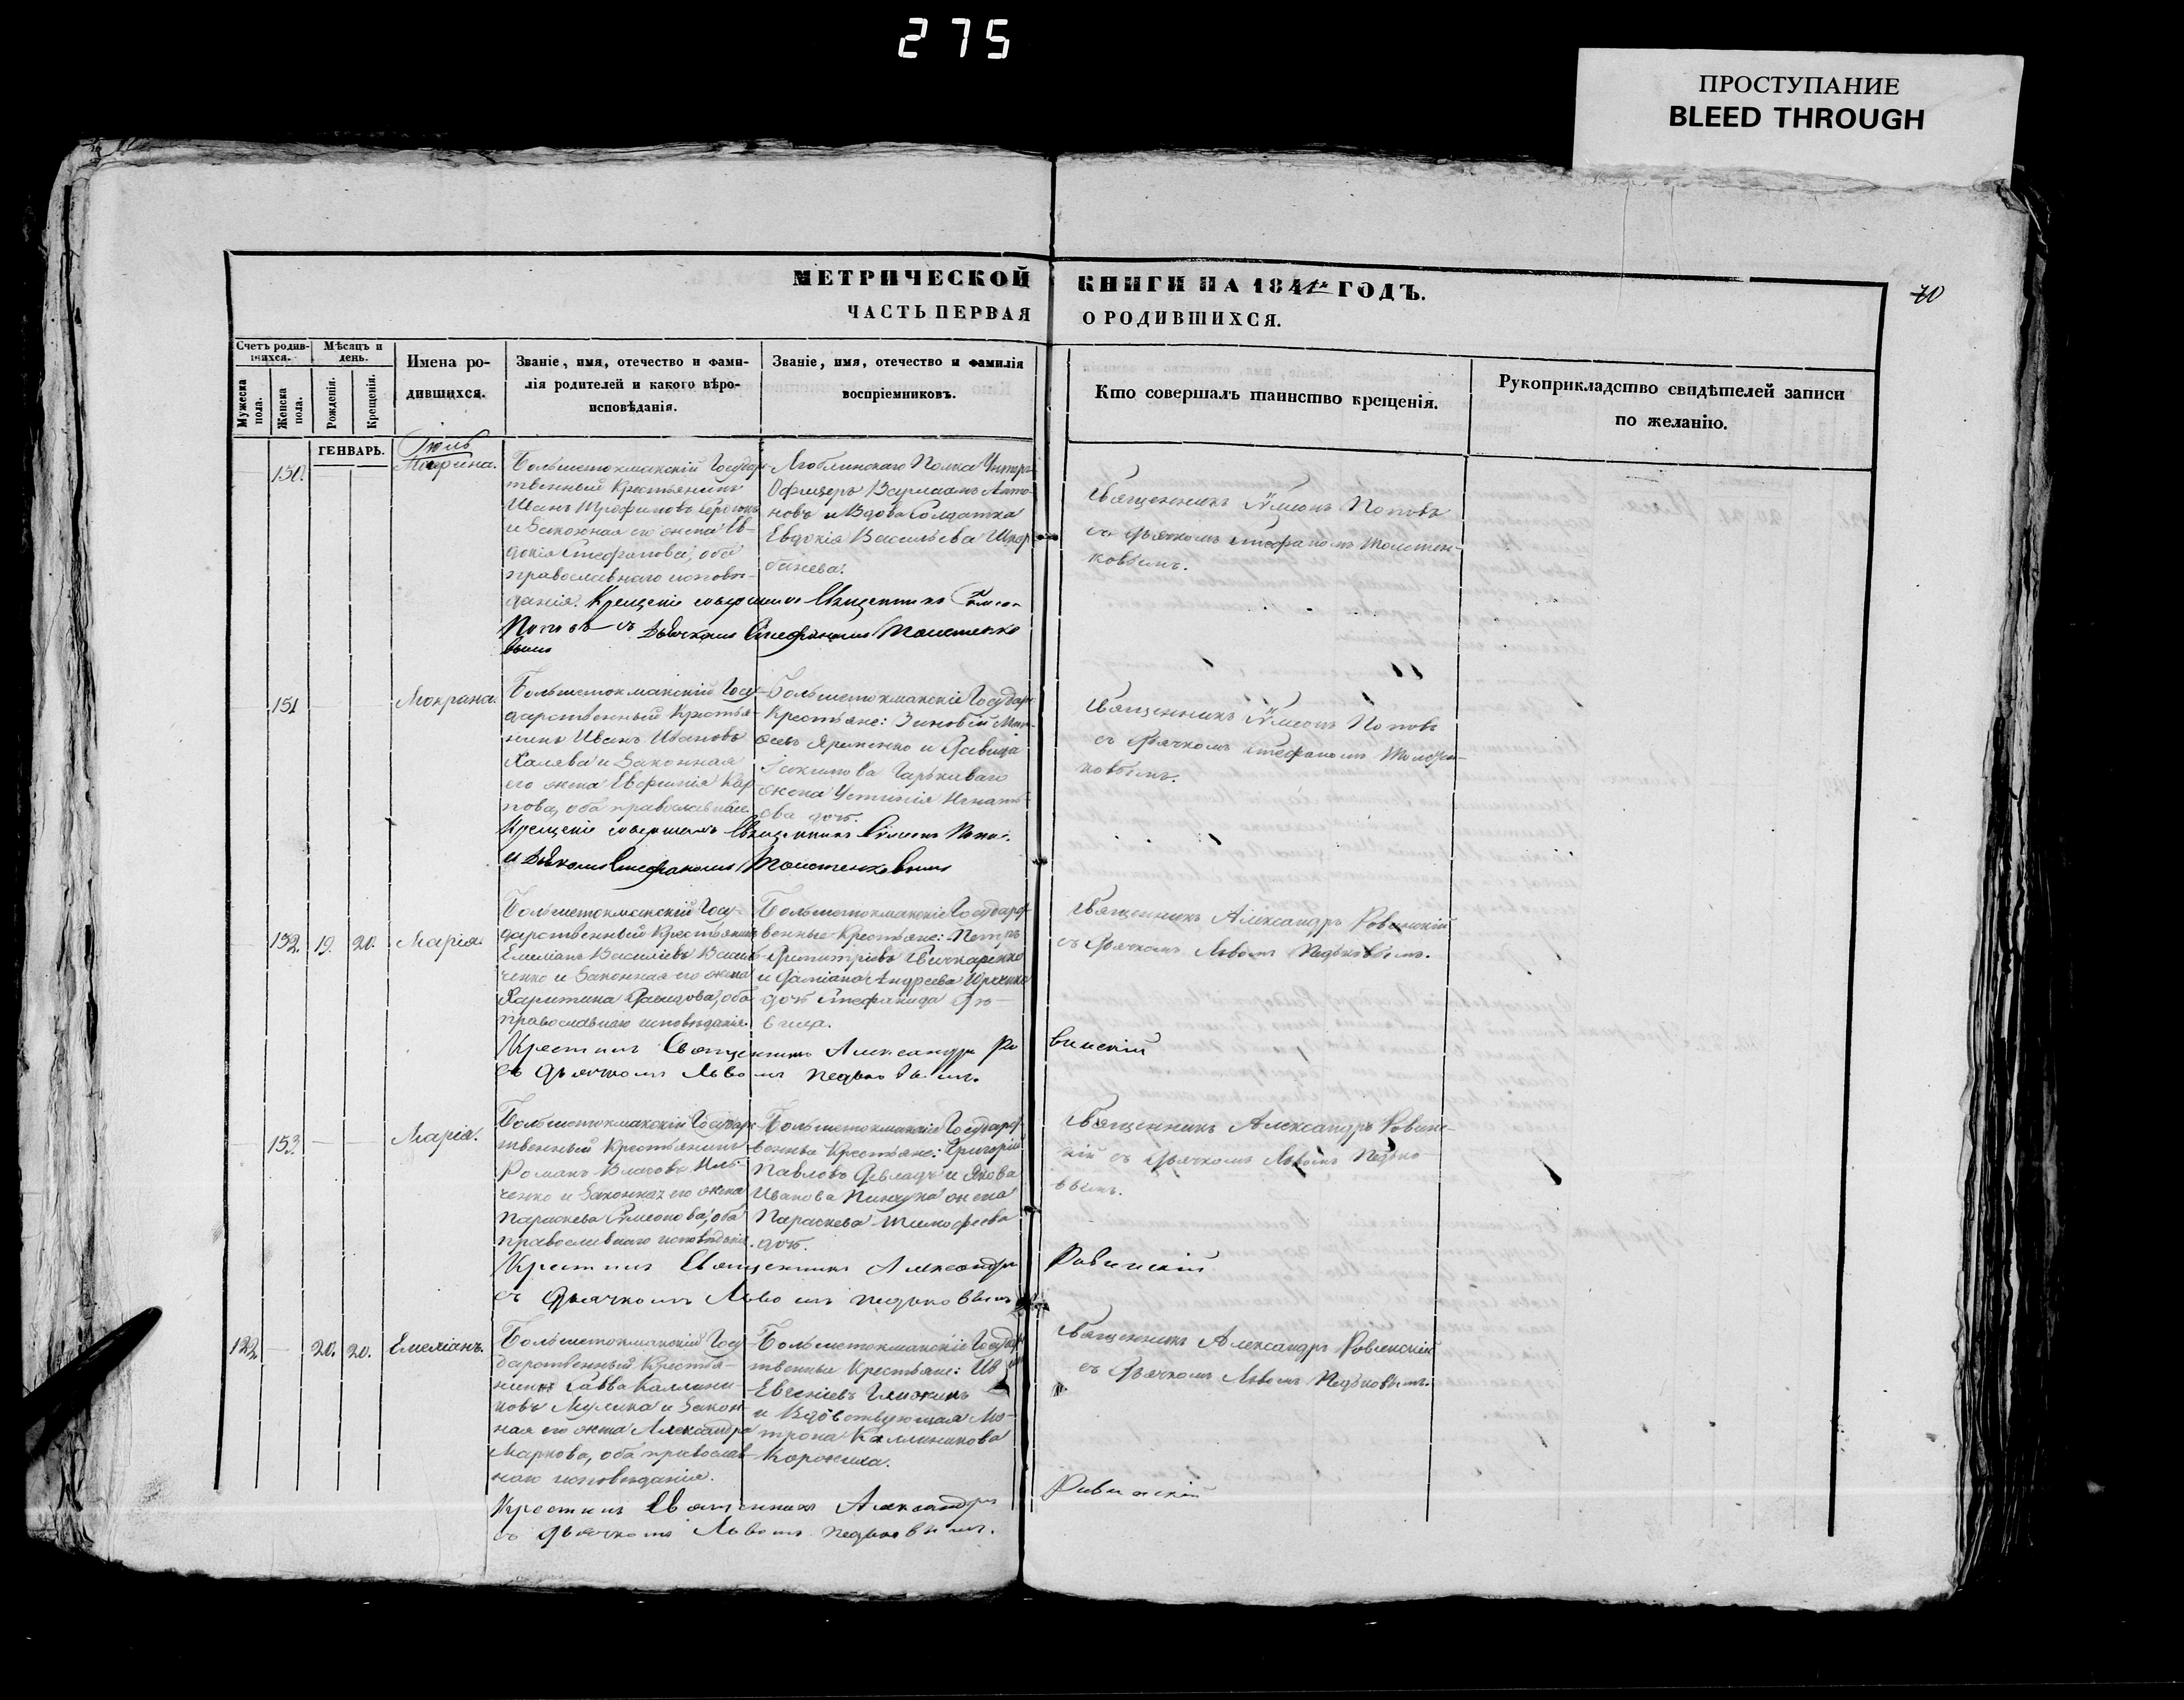 275
ПРОСТУПАНИЕ
BLEED THROUGH
МЕТРИЧЕСКОЙ КНИГИ НА 1841 ГОДЪ.
70
ЧАСТЬ ПЕРВАЯ О РОДИВШИХСЯ.
Счетъ родившихся.
Мѣсяцъ и день.
Мужеска пола.
Женска пола.
Рожденія.
Крещенія.
Имена ро-
дившихся.
Званіе, имя, отечество и фами-
лія родителей и какого вѣро-
исповѣданія.
Званіе, имя, отечество и фамилія
воспріемниковъ.
Кто совершалъ таинство крещенія.
Рукоприкладство свидѣтелей записи
по желанію.
ГЕНВАРЬ.
Іюль
150.
Большетокмакскій Государ-
твенный Крестьянинъ
Иванъ Трофимовъ
и Законная его жена Ев-
докія Стефанова, оба
православнаго исповѣ-
данія. Крещеніе совершилъ Священникъ
Поповъ съ Дьячкомъ Стефаномъ Толстенко
вымъ
Полка Унтеръ
Офицеръ Варлаамъ Анто-
новъ и Вдова Солдатка
Евдокія Васильева
Священникъ Сѵмеонъ Поповъ
съ Дьячкомъ Стефаномъ Толстен-
ковымъ.
151
Мокрина.
Большетокмакскій Госу-
дарственный Крестья-
нинъ Иванъ Ивановъ
Халява и Законная
его жена Евфимія Кар
пова, оба православнаго
Крещеніе совершалъ Священникъ Сѵмеонъ Поповъ
съ Дьячкомъ Стефаномъ Толстенковымъ
Большетокмакскіе Государ-
Крестьяне: Зиновій
Яременко и Давида
жена Устинія Игнать-
ева дочь.
Священникъ Сѵмеонъ Поповъ
съ Дьячкомъ Стефаномъ
ковымъ.
152. 19. 20. Марія.
Большетокмакскій Госу-
дарственный Крестьянинъ
Емиліанъ Васильевъ Васил
ченко и Законная его жена
Харитина Давидова, оба
православнаго исповѣданія.
Крестилъ Священникъ Александръ Ро винскій
съ Дьячкомъ Львомъ Педьковымъ.
Большетокмакскіе Государст
венные Крестьяне: Петръ
Димитріевъ
и Даміана Андреева Юрченко
дочь Стефанида Дѣ-
вица.
Священникъ Александръ Ровинскій
съ Дьячкомъ Львомъ Педьковымъ.
153. Марія.
Большетокмакскій Государс
твенный Крестьянинъ
Романъ Власовъ Иль-
ченко и Законная его жена
Параскева Сѵмеонова, оба
православнаго исповѣданія.
Крестилъ Священникъ Александръ Ровинскій
съ Дьячкомъ Львомъ Педьковымъ
Большетокмакскіе Государст
венные Крестьяне: Григорій
Павловъ и Якова
Иванова Пинчука жена
Параскева Тимофеева
дочь.
Священникъ Александръ Ровинс-
кій съ Дьячкомъ Львомъ Педько-
вымъ.
122. 20. 20. Емеліанъ.
Большетокмакскій Госу
дарственный Крестья-
нинъ Савва Каллини
ковъ Мулика и Закон
ная его жена Александра
Маркова, оба православ-
наго исповѣданія.
Крестилъ Священникъ Александръ Ровинскій
съ Дьячкомъ Львомъ Педьковымъ.
Большетокмакскіе Государс
твенные Крестьяне:
Евгеніевъ
и Вдовствующая Ма-
трона Каллиникова
Священникъ Александръ Ровинскій
съ Дьячкомъ Львомъ Педьковымъ.